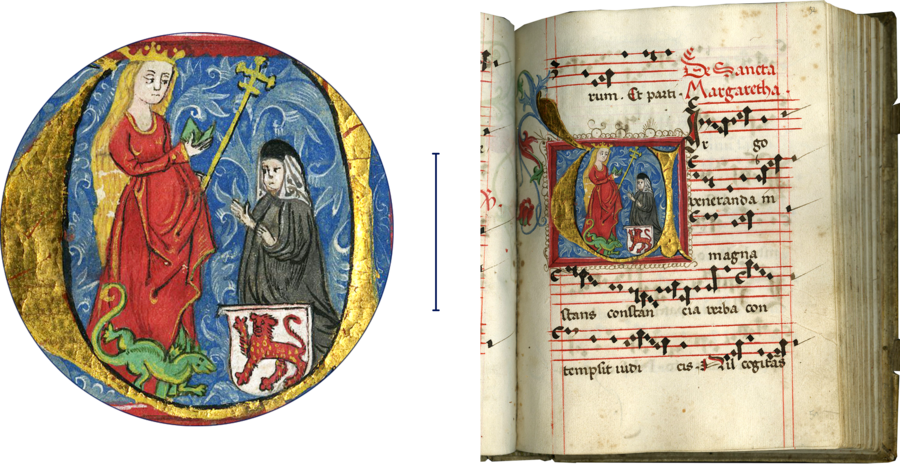 De Sancta
rum . Et parti .
Margaretha .
Ir go
veneranda in
magna
stans constan cia verba con
tempsit iudi cis . Nil cogitas